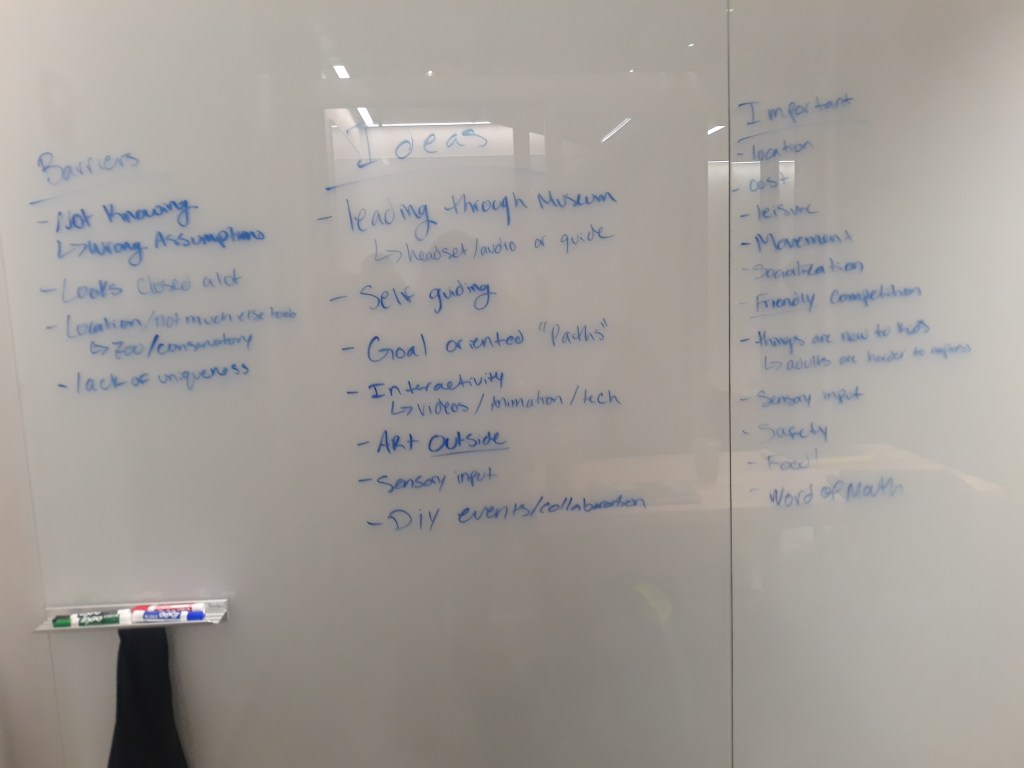 Barriers
- Not Knowing
↳ Wrong Assumptions
- Looks closed a lot
- Location/not much else
↳ Zoo/conservatory
- lack of uniqueness
Ideas
- leading through Museum
↳ headset/audio or guide
- Self guiding
- Goal oriented "Paths"
- Interactivity
↳ videos / Animation / tech
- Art Outside
- Sensory input
- DIY events/collaboration
Important
- location
- cost
- leisure
- Movement
- Socialization
- Friendly Competition
- things are new to kids
↳ adults are harder to impress
- Sensory input
- Safety
- Food!
- Word of Mouth
EXPO